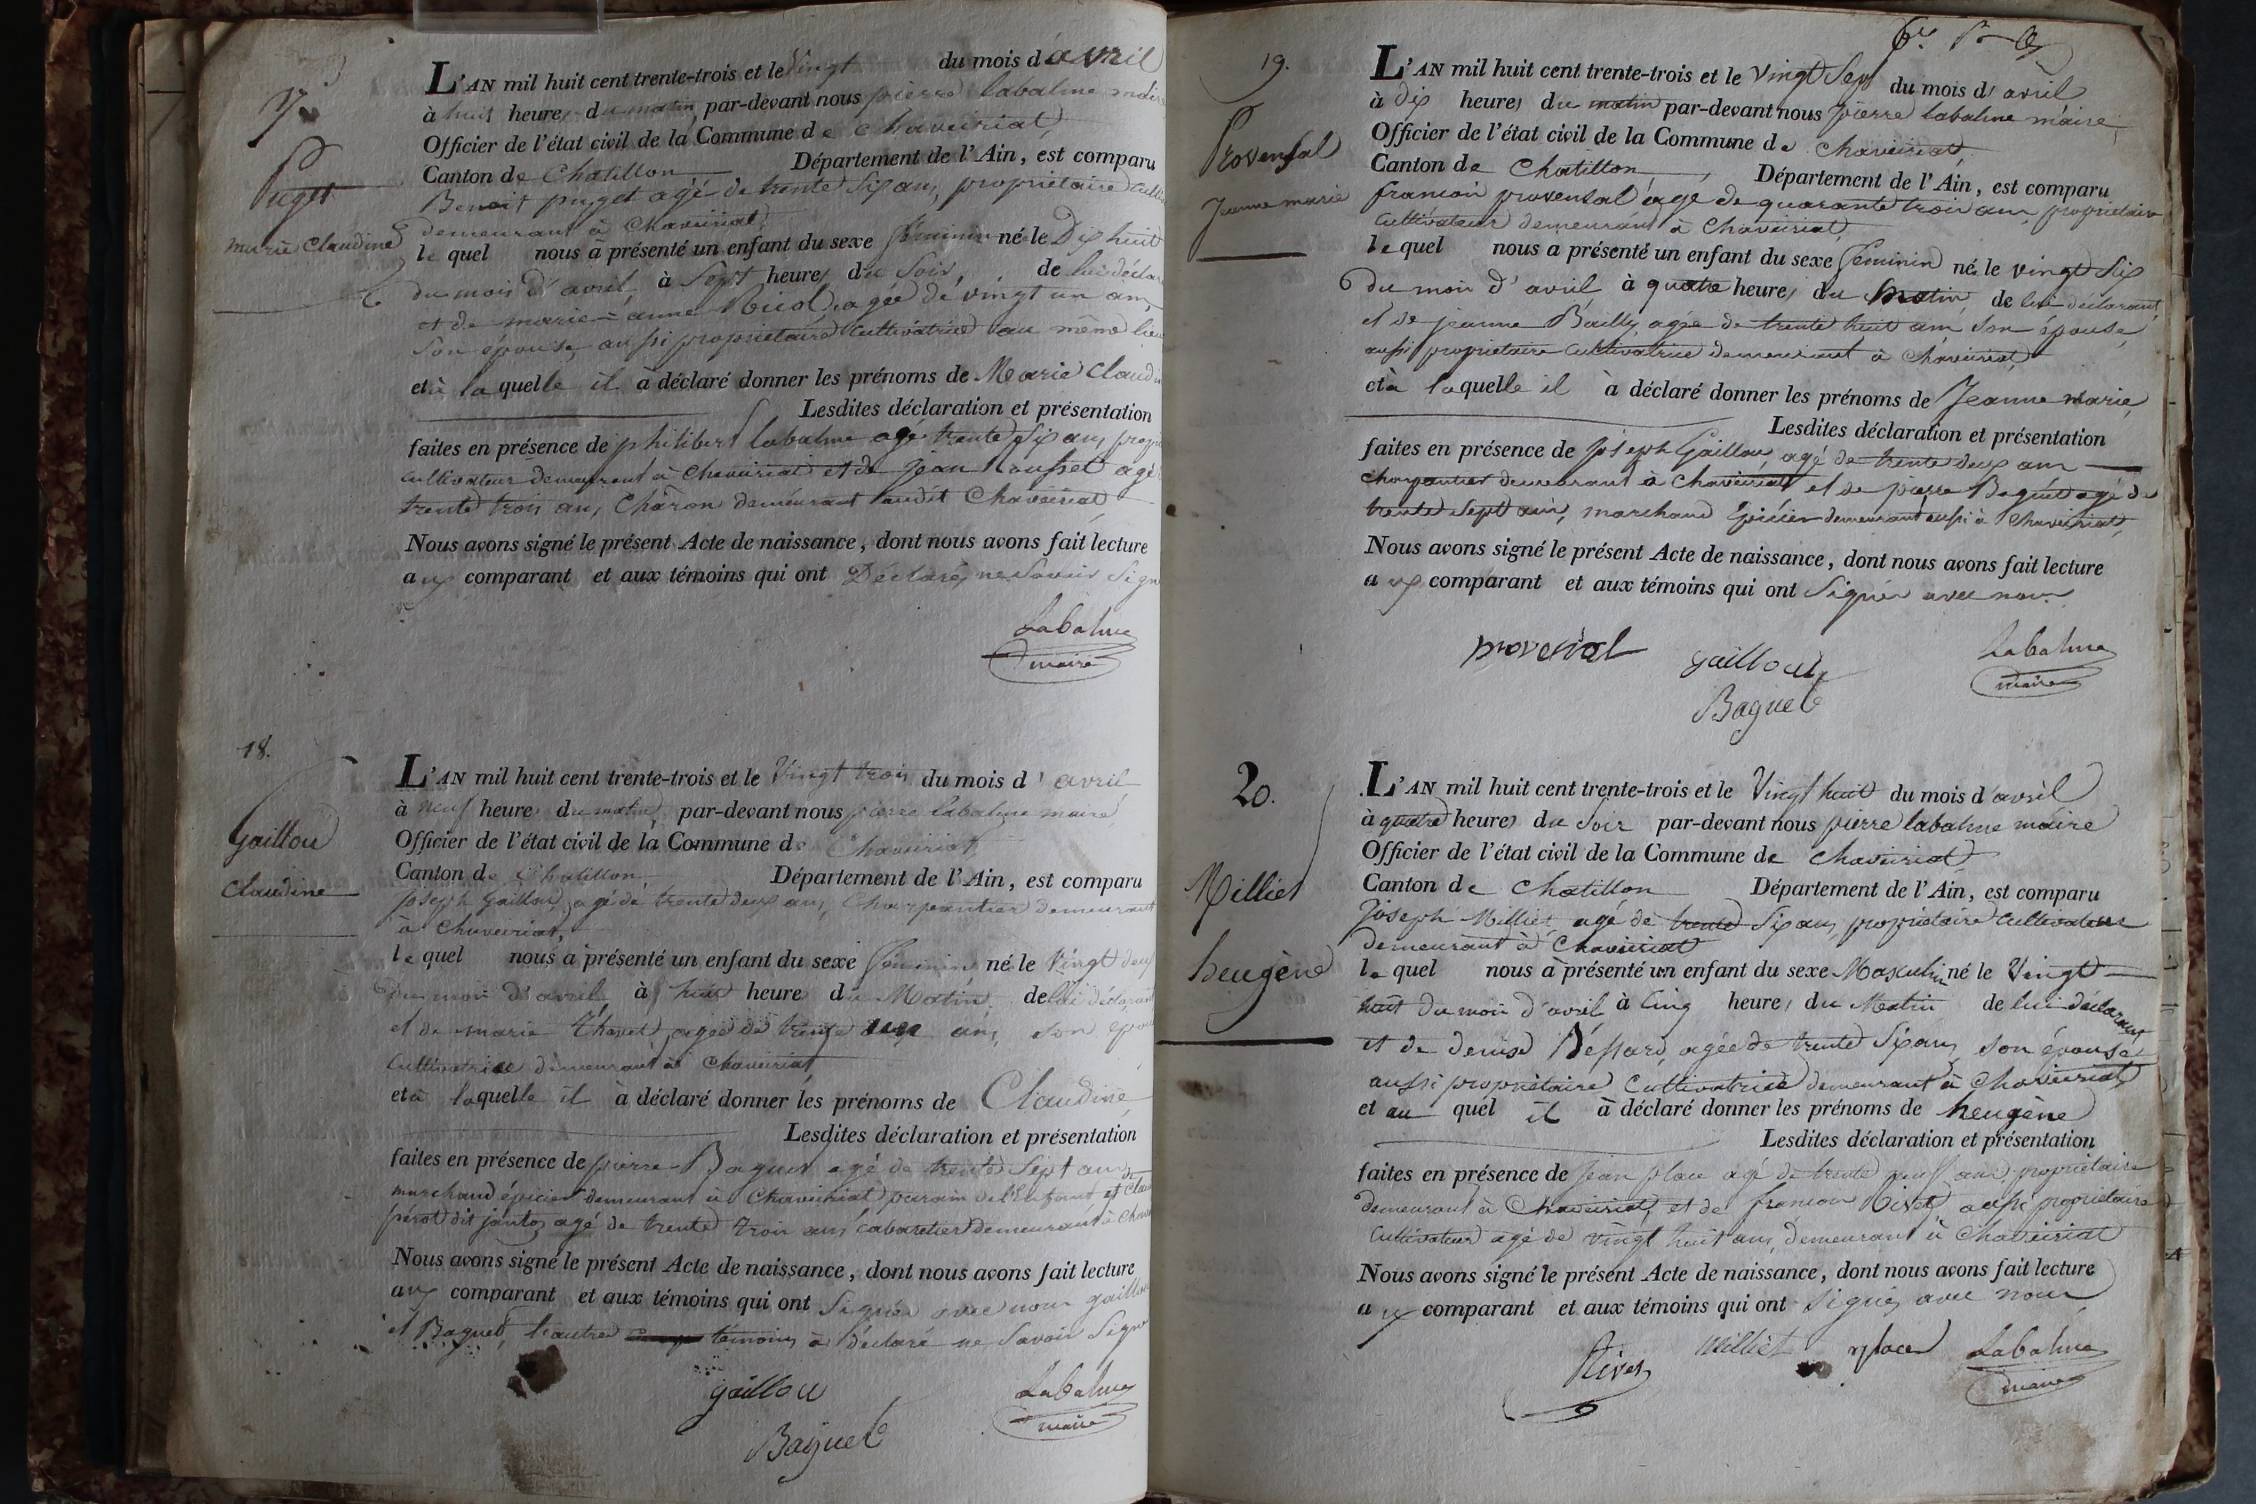 17
Puget
marie Claudine
L'AN mil huit cent trente-trois et le Vingt du mois d'avril
à huit heures du matin, par-devant nous pierre labalme maire
Officier de l'état civil de la Commune de chaveiriat,
Canton de Chatillon Département de l'Ain, est comparu
Benoit puget agé de trente six ans, propriétaire
demeurant à Chaveiriat,
le quel nous à présenté un enfant du sexe féminin né le Dix huit
du mois d'avril, à Sept heures du Soir, de lui
et de marie-anne Nicol agée de vingt un ans,
Son épouse, aussi propriétaire Cultivatrice au même lieu
et à laquelle il à déclaré donner les prénoms de Marie Claudine
Lesdites déclaration et présentation
faites en présence de philibert labalme agé trente six ans
cultivateur demeurant à Chaveiriat et de jean Rousset agé
trente trois ans, Charon demeurant audit Chaveiriat
Nous avons signé le présent Acte de naissance, dont nous avons fait lecture
aux comparant et aux témoins qui ont Déclaré ne Savoir Signer
Labalme
maire
18.
Gaillou
Claudine
L'AN mil huit cent trente-trois et le Vingt trois du mois d'avril
à neuf heures du matin, par-devant nous pierre labalme maire
Officier de l'état civil de la Commune de Chaveiriat,
Canton de Chatillon, Département de l'Ain, est comparu
joseph Gaillou, agé de trente deux ans, Charpentier demeurant
à Chaveiriat,
le quel nous à présenté un enfant du sexe féminin né le Vingt deux
du mois d'avril à huit heures du Matin de lui déclarant
et de marie agée de trente ans, son épouse
Cultivatrice demeurant à Chaveiriat
et à laquelle il à déclaré donner les prénoms de Claudine
Lesdites déclaration et présentation
faites en présence de pierre Baguet agé de trente Sept ans
marchand épicier demeurant à Chaveiriat parain de l'Enfant et
pérot dit agé de trente trois ans cabaretier demeurant à
Nous avons signé le présent Acte de naissance, dont nous avons fait lecture
aux comparant et aux témoins qui ont Signés avec nous gaillou
et Baguet, l'autre témoin à déclaré ne Savoir Signer
gaillou
Labalme
maire
Baguet
19.
Provensal
Jeanne marie
L'AN mil huit cent trente-trois et le Vingt Sept du mois d'avril
à Dix heures du matin par-devant nous pierre labalme maire,
Officier de l'état civil de la Commune de Chaveiriat,
Canton de Chatillon, Département de l'Ain, est comparu
francois provensal agé de quarante trois ans, propriétaire
Cultivateur demeurant à Chaveiriat,
le quel nous a présenté un enfant du sexe féminin né le vingt Six
du mois d'avril à quatre heures du Matin, de lui déclarant,
et de jeanne Bailly, agée de trente huit ans, Son épouse,
aussi propriétaire Cultivatrice demeurant à Chaveiriat,
et à laquelle il à déclaré donner les prénoms de Jeanne marie,
Lesdites déclaration et présentation
faites en présence de joseph Gaillou, agé de trente deux ans
charpentier demeurant à Chaveiriat et de pierre Baguet agé de
trente Sept ans, marchand Epicier demeurant aussi à Chaveiriat,
Nous avons signé le présent Acte de naissance, dont nous avons fait lecture
aux comparant et aux témoins qui ont Signés avec nous.
provensal gaillou Labalme
maire
Baguet
20.
Milliet
heugène
L'AN mil huit cent trente-trois et le Vingt huit du mois d'avril
à quatre heures du Soir par-devant nous pierre labalme maire
Officier de l'état civil de la Commune de Chaveiriat,
Canton de Chatillon Département de l'Ain, est comparu
Joseph Milliet agé de trente Six ans, propriétaire Cultivateur
demeurant à Chaveiriat
le quel nous à présenté un enfant du sexe Masculin né le Vingt
huit du mois d'avril à Cinq heures du Matin de lui déclarant
et de denise agée de trente Six ans, son épouse
aussi propriétaire Cultivatrice demeurant à Chaveiriat,
et au quel il à déclaré donner les prénoms de heugène
Lesdites déclaration et présentation
faites en présence de Jean place agé de trente neuf ans, propriétaire
demeurant à Chaveiriat, et de francois aussi propriétaire
Cultivateur agé de vingt huit ans, demeurant à Chaveiriat
Nous avons signé le présent Acte de naissance, dont nous avons fait lecture
aux comparant et aux témoins qui ont Signés avec nous
Milliet place Labalme
maire